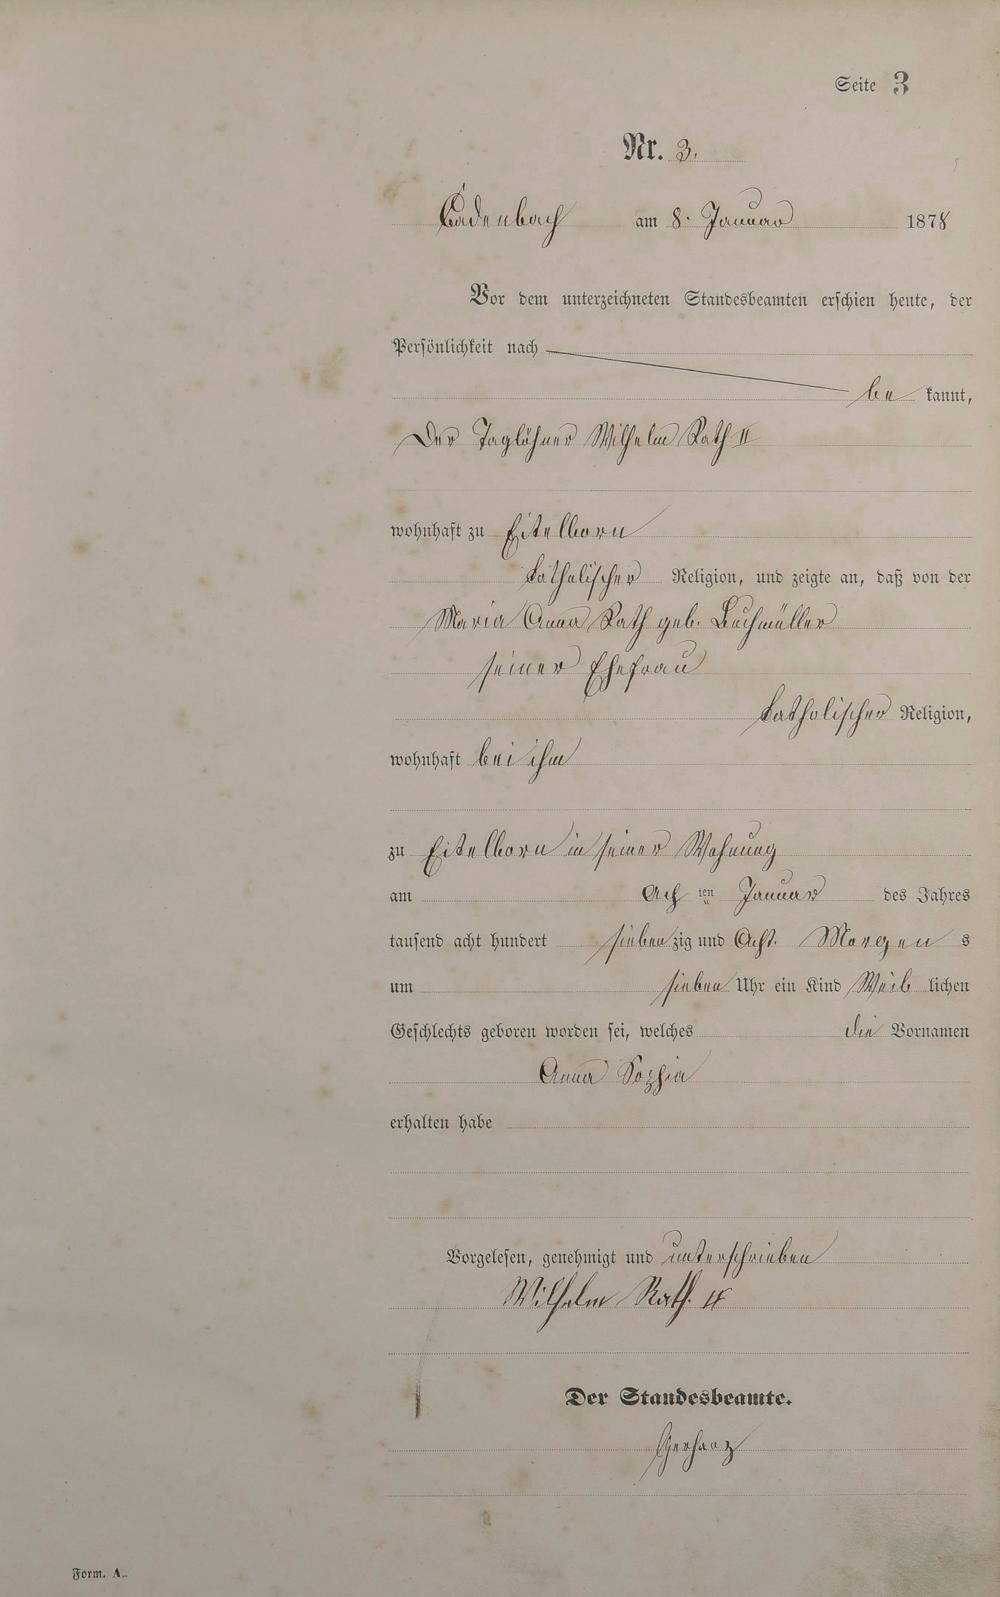 Seite 3
Nr. 3.
Cadenbach am 8. Januar 1878
Vor dem unterzeichneten Standesbeamten erschien heute, der
Persönlichkeit nach
be kannt,
Der Taglöhner Wilhelm Rath II
wohnhaft zu Eitelborn
katholischer Religion, und zeigte an, daß von der
Maria Anna Rath geb. Buchmüller
seiner Ehefrau
katholischer Religion,
wohnhaft bei ihm
zu Eitelborn in seiner Wohnung
am Ach ten Januar des Jahres
tausend acht hundert siebenzig und Acht. Morgen s
um sieben Uhr ein Kind Weib lichen
Geschlechts geboren worden sei, welches die Vornamen
Anna Sophia
erhalten habe
Vorgelesen, genehmigt und unterschrieben
Wilhelm Rath. II
Der Standesbeamte.
Gerharz
Form. A.